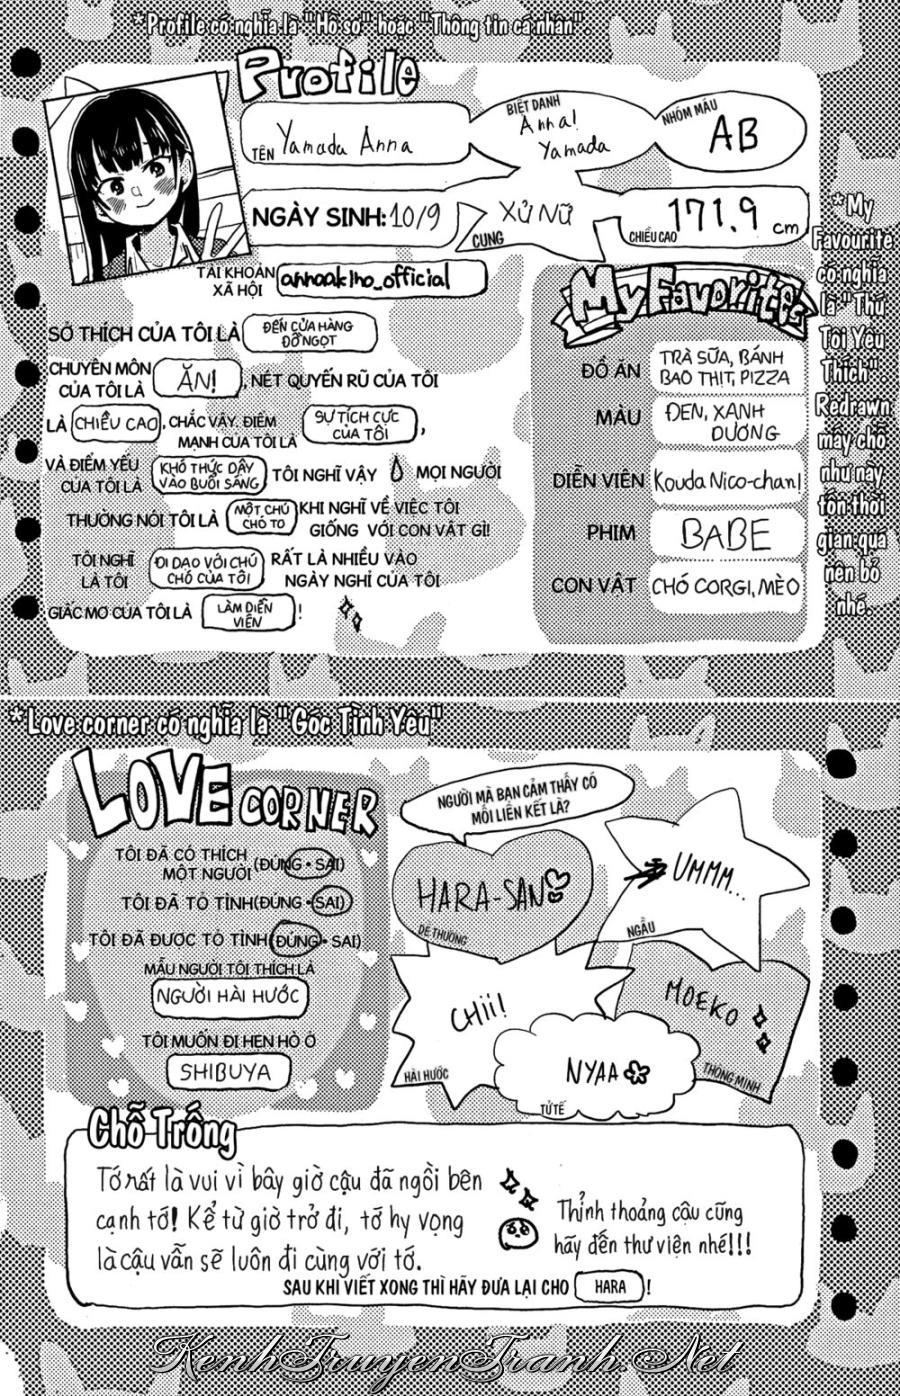 *Profile có nghĩa là "Hồ sơ" hoặc "Thông tin cá nhân".
Profile
TÊN Yamada Anna
BIỆT DANH
Anna!
Yamada
NHÓM MÁU
AB
NGÀY SINH: 10/9
XỬ NỮ
CUNG
171.9 cm
CHIỀU CAO
TÀI KHOẢN
XÃ HỘI
annaakino_official
SỞ THÍCH CỦA TÔI LÀ ĐẾN CỬA HÀNG
ĐỒ NGỌT
CHUYÊN MÔN
CỦA TÔI LÀ ĂN!, NÉT QUYẾN RŨ CỦA TÔI
LÀ CHIỀU CAO, CHẮC VẬY. ĐIỂM
MẠNH CỦA TÔI LÀ SỰ TÍCH CỰC
CỦA TÔI,
VÀ ĐIỂM YẾU
CỦA TÔI LÀ KHÓ THỨC DẬY
VÀO BUỔI SÁNG TÔI NGHĨ VẬY MỌI NGƯỜI
THƯỜNG NÓI TÔI LÀ MỘT CHÚ
CHÓ TO KHI NGHĨ VỀ VIỆC TÔI
GIỐNG VỚI CON VẬT GÌ!
TÔI NGHĨ
LÀ TÔI ĐI DẠO VỚI CHÚ
CHÓ CỦA TÔI RẤT LÀ NHIỀU VÀO
NGÀY NGHỈ CỦA TÔI
GIẤC MƠ CỦA TÔI LÀ LÀM DIỄN
VIÊN !
My Favorites
ĐỒ ĂN TRÀ SỮA, BÁNH
BAO THỊT, PIZZA
MÀU ĐEN, XANH
DƯƠNG
DIỄN VIÊN Kouda Nico-chan!
PHIM BABE
CON VẬT CHÓ CORGI, MÈO
*My
Favourite
có nghĩa
là "Thứ
Tôi Yêu
Thích".
Redrawn
mấy chỗ
như này
tốn thời
gian quá
nên bỏ
nhé.
*Love corner có nghĩa là "Góc Tình Yêu"
LOVE CORNER
TÔI ĐÃ CÓ THÍCH
MỘT NGƯỜI (ĐÚNG • SAI)
TÔI ĐÃ TỎ TÌNH (ĐÚNG • SAI)
TÔI ĐÃ ĐƯỢC TỎ TÌNH (ĐÚNG • SAI)
MẪU NGƯỜI TÔI THÍCH LÀ
NGƯỜI HÀI HƯỚC
TÔI MUỐN ĐI HẸN HÒ Ở
SHIBUYA
NGƯỜI MÀ BẠN CẢM THẤY CÓ
MỐI LIÊN KẾT LÀ?
HARA-SAN
DỄ THƯƠNG
UMMM...
NGẦU
CHii!
HÀI HƯỚC
MOEKO
THÔNG MINH
NYAA
TỬ TẾ
Chỗ Trống
Tớ rất là vui vì bây giờ cậu đã ngồi bên
cạnh tớ! Kể từ giờ trở đi, tớ hy vọng
là cậu vẫn sẽ luôn đi cùng với tớ.
Thỉnh thoảng cậu cũng
hãy đến thư viện nhé!!!
SAU KHI VIẾT XONG THÌ HÃY ĐƯA LẠI CHO HARA !
KenhTruyenTranh.Net